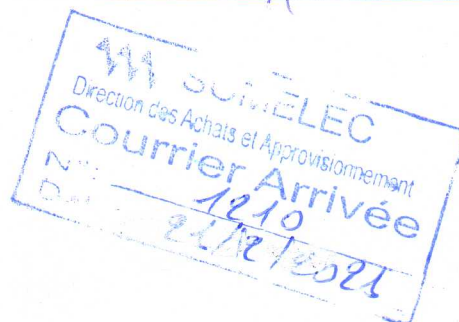 SOMELEC
Direction des Achats et Approvisionnement
Courrier Arrivée
N°: 1210